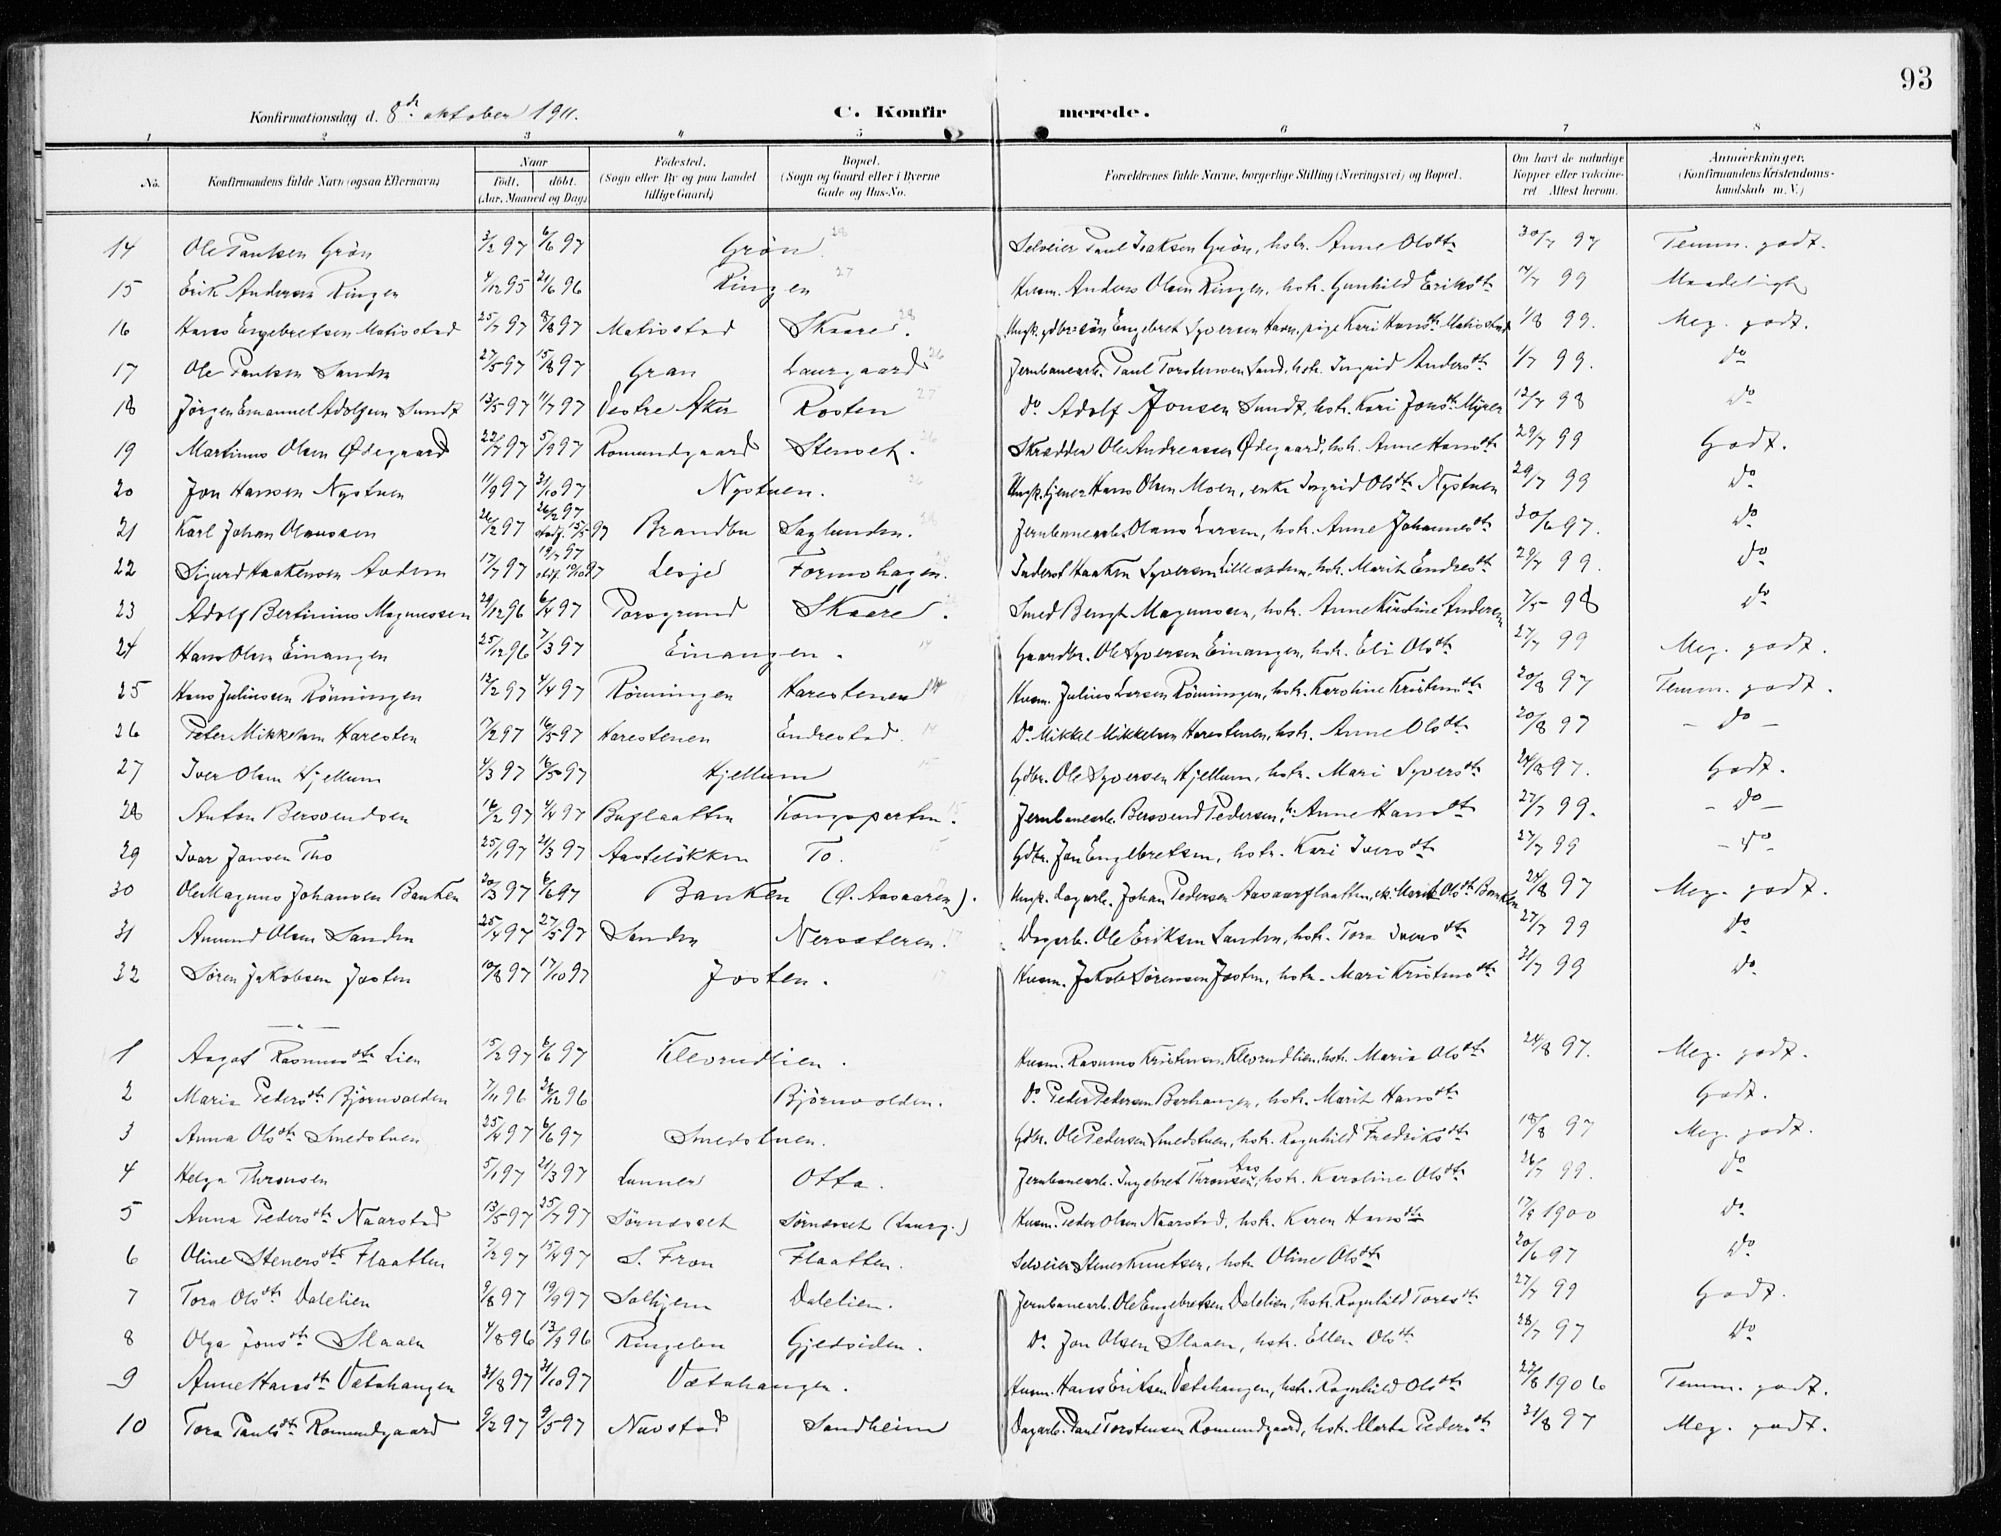 93
Konfirmationsdag d. 8de oktober 1911. C. Konfirmerede.
1 2 3 4 5 6 7 8
No. Konfirmandens fulde Navn (ogsaa Efternavn) Naar født. døbt. (Aar, Maaned og Dag) Fødested. (Sogn eller By og paa Landet tillige Gaard) Bopæl. (Sogn og Gaard eller i Byerne Gade og Hus-No. Forældrenes fulde Navne, borgerlige Stilling (Næringsvei) og Bopæl. Om havt de naturlige Kopper eller vaccineret Attest herom. Anmærkninger. (Konfirmandens Kristendomskundskab m. V.)
14 Ole Paulsen Grön 3/2 97 6/6 97 Grön Selveier Paul Isaksen Grön, hstr. Anne Olsdtr 30/7 97 Temm. godt.
15 Erik Andersen Ringen 4/12 95 21/6 96 Ringen 27 Husm. Anders Olsen Ringen, hstr. Gunhild Eriksdtr 17/7 99 Maadeligh
16 Hans Engebretsen Matisstad 25/7 97 8/8 97 Matisstad Skaare. Ungk. gdbr.søn Engebret Syversen Havn, pige Kari Hansdtr Matisstad 1/8 99. Meg. godt.
17 Ole Paulsen Sanden 27/5 97 15/8 97 Gran Laurgaard 26 Jernbanearb. Paul Torstensen Sand, hstr. Ingrid Andersdtr 1/7 99. do
18 Jørgen Emanuel Adolfsen Sundt 13/5 97 11/7 97 Vestre Aker Rosten Do. Adolf Jonsen Sundt, hstr. Kari Jonsdtr Myren 12/7 98 do
19 Martinus Olsen Ødegaard 22/7 97 5/9 97 Romundgaard Stenset. 26 Skrædder Ole Andreassen Ødegaard, hstr. Anne Hansdtr 29/7 99 Godt.
20 Jon Hansen Nystuen 11/9 97 31/10 97 Nystuen. Ungk. tjener Hans Olsen Moen, enke Ingrid Olsdtr Nystuen 29/7 99 do
21 Karl Johan Olaussen 26/2 97 26/2 97 stadf. 15/5 97 Brandbu Saglunden. Jernbanearb. Olaus Larsen, hstr. Anne Johannesdtr 30/6 97. do
22 Sigurd Haakensen Andem 17/7 97 19/7 97 stdf. 10/10 97 Lesje Formohagen. Inderst Haaken Syversen, hstr. Marit Endresdtr 29/7 99. do
23 Adolf Bertinius Magnussen 29/12 96 6/4 97 Porsgrund Skaare. Smed Bengt Magnussen, hstr. Anne Kirstine Andersen 7/5 98 do
24 Hans Olsen Einangen 25/12 96 7/3 97 Einangen. 14 Gaardbr. Ole Syversen Einangen, hstr. Eli Olsdtr 27/7 99 Meg. godt.
25 Hans Juliussen Rönningen 13/2 97 4/4 97 Rönningen Harestenen 14 Husm. Julius Larsen Rönningen, hstr. Karoline Kristensdtr 20/8 97 Temm. godt.
26 Peter Mikkelsen Haresten 17/2 97 16/5 97 Harestenen Endrestad. 14 Do. Mikkel Mikkelsen Harestenen, hstr. Anne Olsdtr 20/8 97 - do -
27 Iver Olsen Hjellum 4/3 97 16/5 97 Hjellum 15 Gdbr. Ole Syversen Hjellum, hstr. Mari Syversdtr 24/8 97. Godt.
28 Anton Bersvendsen 14/2 97 4/4 97 Buflaatten Kongsparten. 15 Jernbanearb. Bersvend Pedersen, h. Anne Hansdtr 27/7 99. - do -
29 Ivar Jonsen Tho 25/1 97 21/3 97 Aasteløkken To. 15 Gdbr. Jon Engebretsen, hstr. Kari Iversdtr 27/7 99 - do -
30 Ole Magnus Johansen Banken 20/3 97 6/6 97 Banken (Ø. Aasaaren). Ungk. dagarb. Johan Pedersen Aasaarflaatten, ek. Marit Olsdtr Banken 24/8 97 Meg. godt.
31 Amund Olsen Sanden 25/4 97 27/5 97 Sanden Nersæteren. 17 Dagarb. Ole Eriksen Sanden, hstr. Tora Iversdtr 27/7 99 do
32 Søren Jakobsen Josten 10/8 97 17/10 97 Josten. 17 Husm. Jakob Sørensen Josten, hstr. Mari Kristensdtr 31/7 99 do
1 Aagot Rasmusdtr Lien 15/2 97 6/6 97 Klevrudlien. Husm. Rasmus Kristensen Klevrudlien, hstr. Maria Olsdtr 24/8 97. Meg. godt.
2 Maria Pedersdtr Bjørnvolden 7/11 96 26/12 96 Bjørnvolden. Do. Peder Pedersen Berhaugen, hstr. Marit Hansdtr Godt.
3 Anna Olsdtr Smedstuen 25/4 97 6/6 97 Smedstuen. Gdbr. Ole Pedersen Smedstuen, hstr. Ragnhild Fredriksdtr 18/8 97 Meg. godt.
4 Helga Thronsen 5/1 97 21/3 97 Lunner Otta. Jernbanearb. Ingebret Thronsen Aas, hstr. Karoline Olsdtr 26/7 99. do
5 Anna Pedersdtr Naarstad 13/5 97 25/7 97 Sørnæset Sørnæset (Laurg.) Husm. Peder Olsen Naarstad, hstr. Karen Hansdtr 17/9 1900 do
6 Oline Stenersdtr Flaatten 7/2 97 15/4 97 S. Fron Flaatten. Selveier Stener Knutsen, hstr. Oline Olsdtr 20/6 97 do
7 Tora Olsdtr Dalelien 9/8 97 19/9 97 Solhjem Dalelien. Jernbanearb. Ole Engebretsen Dalelien, hstr. Ragnhild Toresdtr 27/7 99 Godt.
8 Olga Jonsdtr Slaaen 4/8 96 13/9 96 Ringebu Gjedsiden. Do. Jon Olsen Slaaen, hstr. Ellen Olsdtr 28/7 97 do
9 Anne Hansdtr Vætahaugen 31/8 97 31/10 97 Vætahaugen. Husm. Hans Eriksen Vætahaugen, hstr. Ragnhild Olsdtr 22/8 1906 Temm. godt.
10 Tora Paulsdtr Romundgaard 9/2 97 9/5 97 Nustad Sandheim Dagarb. Paul Torstensen Romundgaard, hstr. Marta Pedersdtr 31/8 97 Meg. godt.